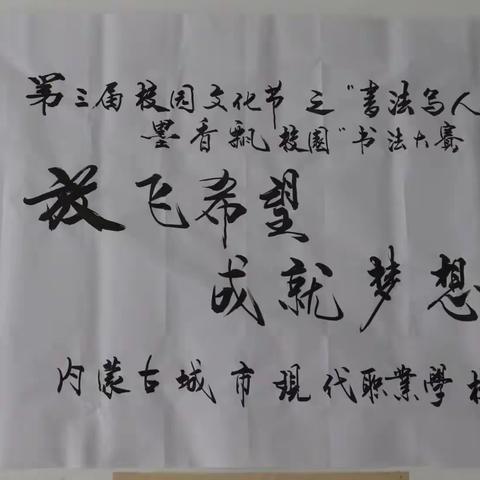 第三届校园文化节之“书法写人
墨香飘校園”书法大赛
放飞希望
成就梦想
内蒙古城市現代职業學校